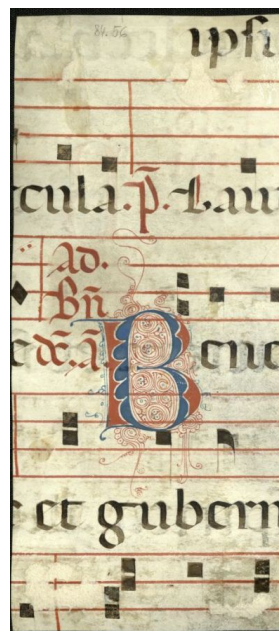 84.56
ipsi
cula. p̄. Lau
ad.
Bn̄
e dc̄. ā Bene
e et gubern